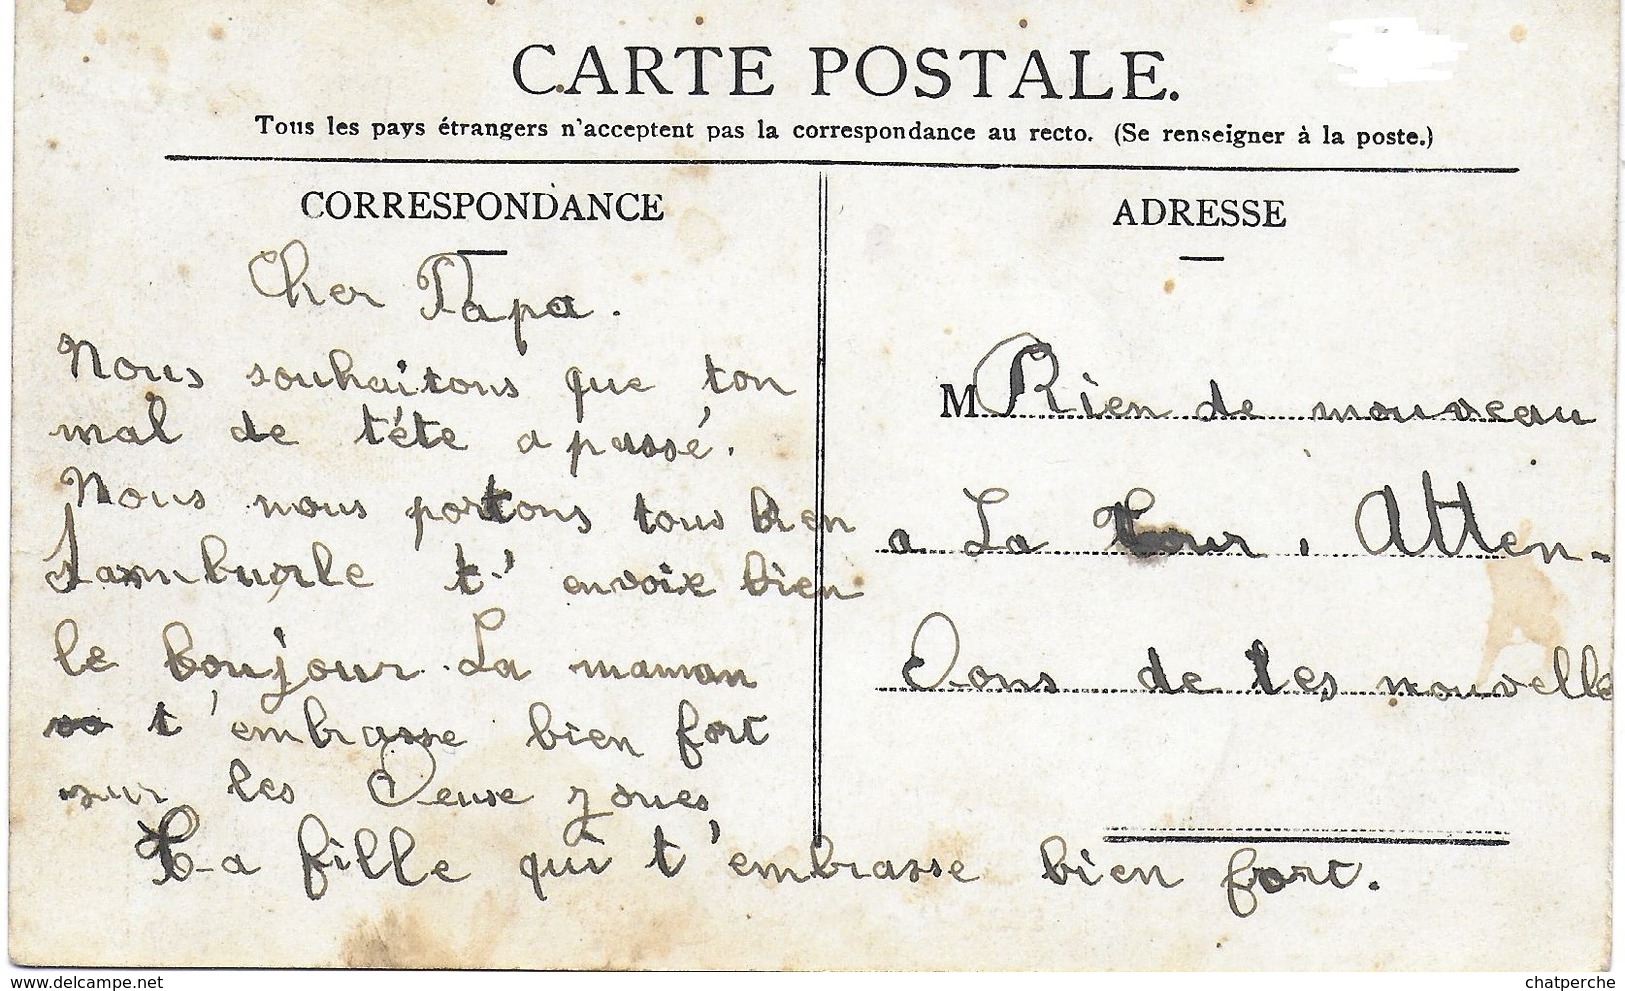 CARTE POSTALE.
Tous les pays étrangers n'acceptent pas la correspondance au recto. (Se renseigner à la poste.)
CORRESPONDANCE
Cher Papa.
Nous souhaitons que ton
mal de téte a passé.
Nous nous portons tous bien
t'envoie bien
le boujour. La maman
t'embrasse bien fort
sur les Deuse joues
Ta fille qui t'embrasse bien fort.
ADRESSE
M Rien de nouveau
a La Tour. Atten-
Dons de tes nouvelle
delcampe.net
chatperche